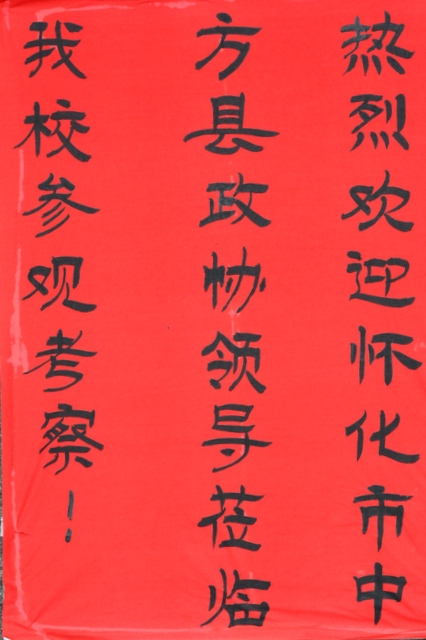 热烈欢迎怀化市中
方县政协领导莅临
我校参观考察！